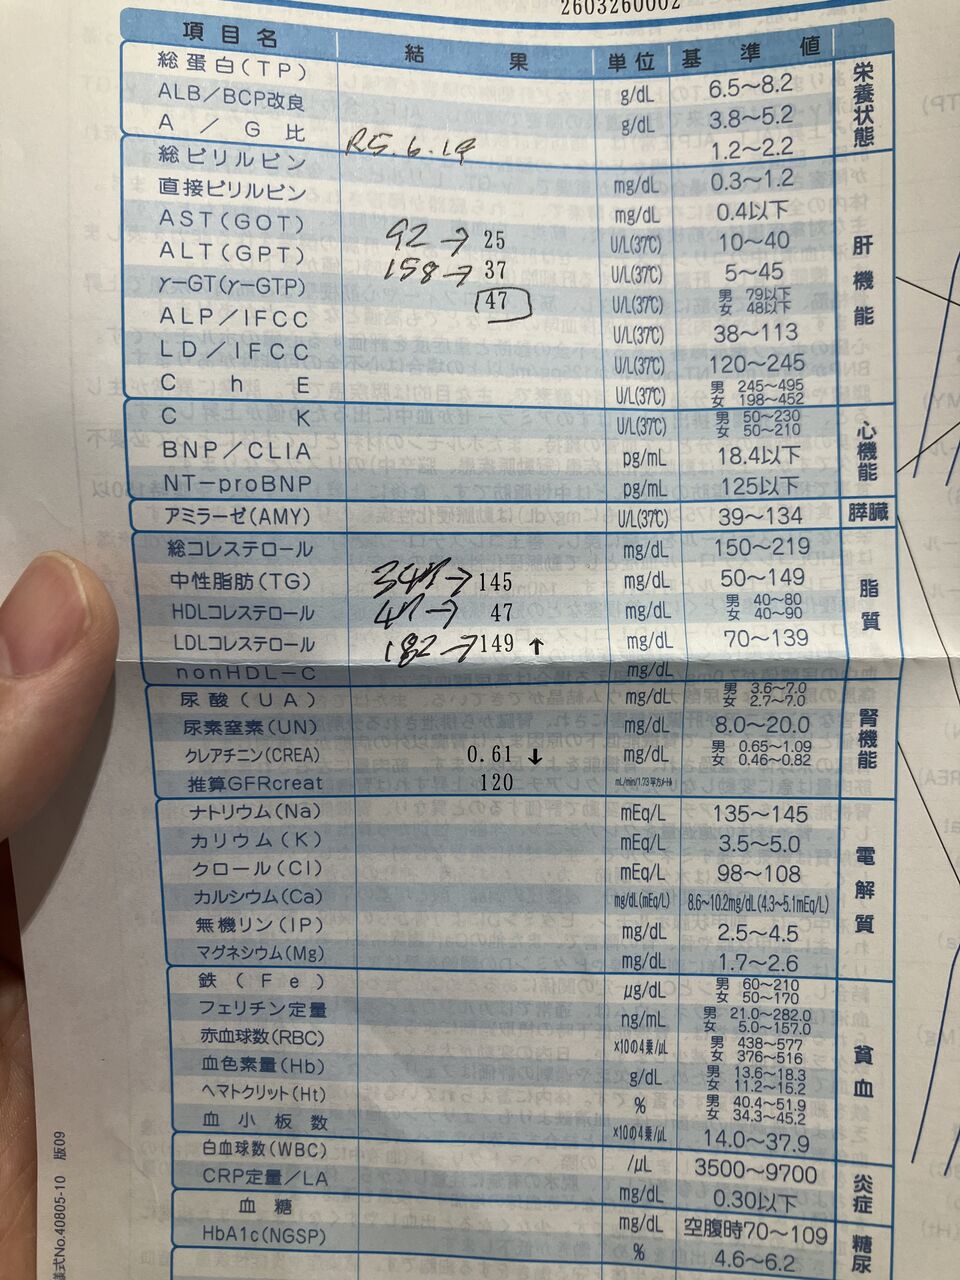 2603260002
項目名 結果 単位 基準値
総蛋白(TP) g/dL 6.5~8.2 栄養状態
ALB/BCP改良 g/dL 3.8~5.2
A/G比 R5.6.19 1.2~2.2
総ビリルビン mg/dL 0.3~1.2 肝機能
直接ビリルビン mg/dL 0.4以下
AST(GOT) 92→25 U/L(37℃) 10~40
ALT(GPT) 158→37 U/L(37℃) 5~45
γ-GT(γ-GTP) 47 U/L(37℃) 男 79以下 女 48以下
ALP/IFCC U/L(37℃) 38~113
LD/IFCC U/L(37℃) 120~245
ChE U/L(37℃) 男 245~495 女 198~452
CK U/L(37℃) 男 50~230 女 50~210 心機能
BNP/CLIA pg/mL 18.4以下
NT-proBNP pg/mL 125以下
アミラーゼ(AMY) U/L(37℃) 39~134 膵臓
総コレステロール mg/dL 150~219 脂質
中性脂肪(TG) →145 mg/dL 50~149
HDLコレステロール →47 mg/dL 男 40~80 女 40~90
LDLコレステロール 182→149 ↑ mg/dL 70~139
nonHDL-C mg/dL
尿酸(UA) mg/dL 男 3.6~7.0 女 2.7~7.0 腎機能
尿素窒素(UN) mg/dL 8.0~20.0
クレアチニン(CREA) 0.61 ↓ mg/dL 男 0.65~1.09 女 0.46~0.82
推算GFRcreat 120 mL/min/1.73平方メートル
ナトリウム(Na) mEq/L 135~145 電解質
カリウム(K) mEq/L 3.5~5.0
クロール(Cl) mEq/L 98~108
カルシウム(Ca) mg/dL(mEq/L) 8.6~10.2mg/dL(4.3~5.1mEq/L)
無機リン(IP) mg/dL 2.5~4.5
マグネシウム(Mg) mg/dL 1.7~2.6
鉄(Fe) μg/dL 男 60~210 女 50~170 貧血
フェリチン定量 ng/mL 男 21.0~282.0 女 5.0~157.0
赤血球数(RBC) ×10の4乗/μL 男 438~577 女 376~516
血色素量(Hb) g/dL 男 13.6~18.3 女 11.2~15.2
ヘマトクリット(Ht) % 男 40.4~51.9 女 34.3~45.2
血小板数 ×10の4乗/μL 14.0~37.9
白血球数(WBC) /μL 3500~9700 炎症
CRP定量/LA mg/dL 0.30以下
血糖 mg/dL 空腹時70~109 糖尿
HbA1c(NGSP) % 4.6~6.2
様式No.40805-10 版09